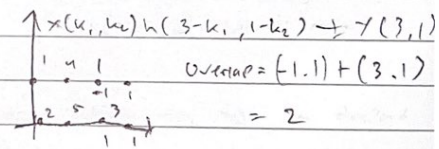 x(k₁,k₂)h(3-k₁,1-k₂) → y(3,1)
1 4 1 overlap = (-1.1) + (3.1)
-1 1
2 5 3 = 2
1 1